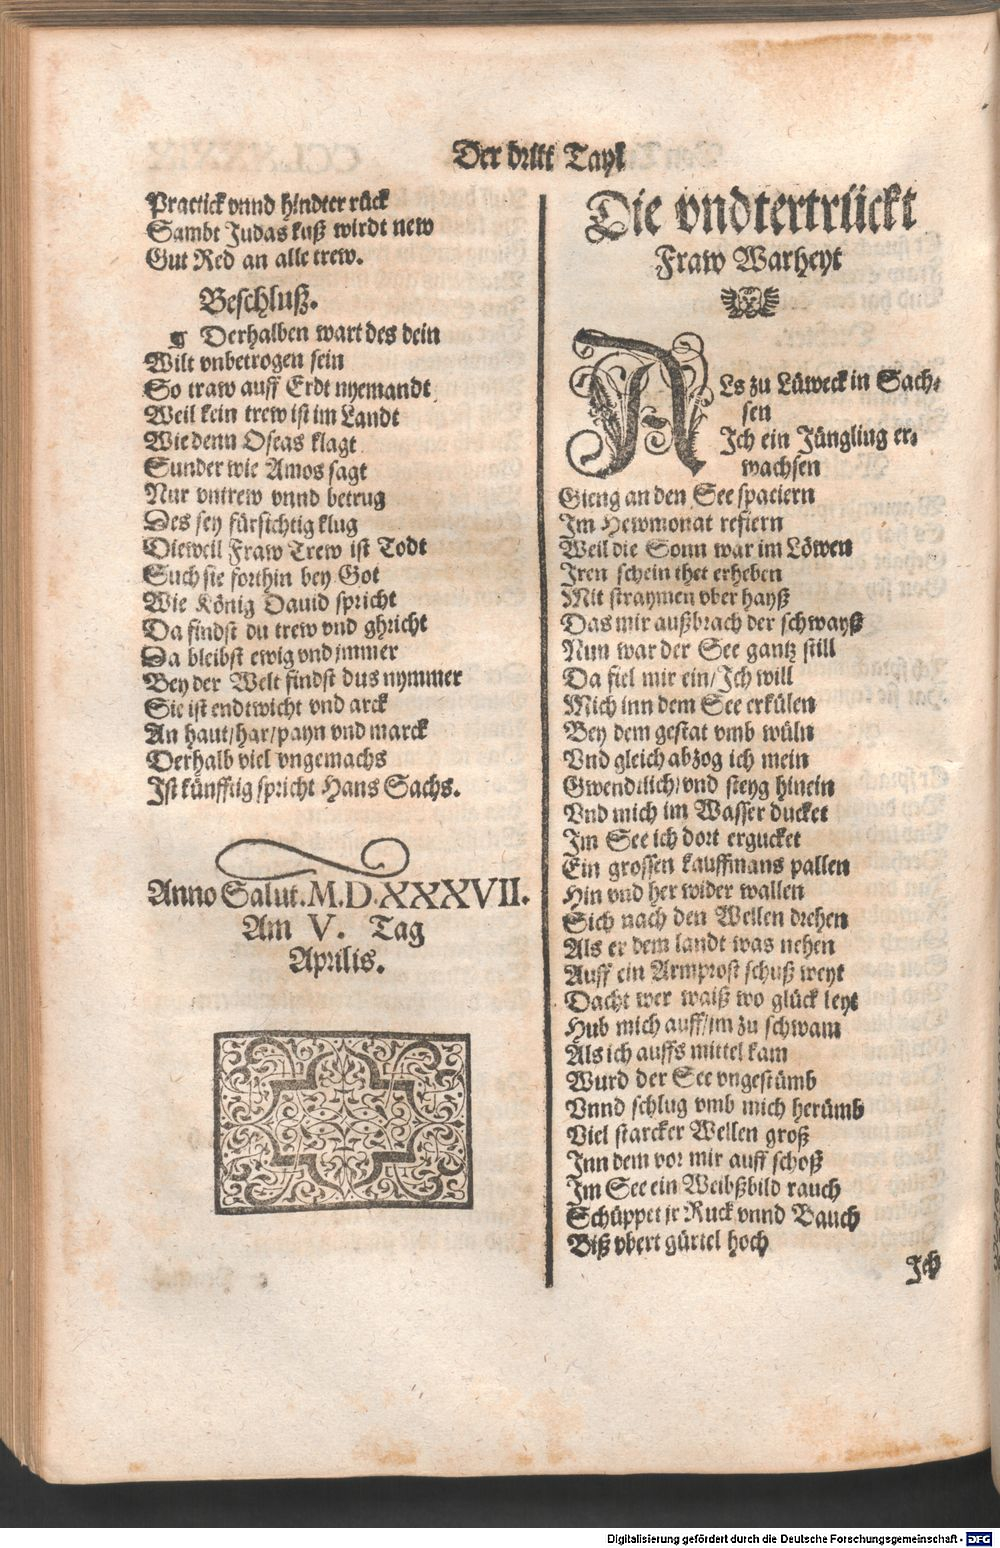 Der dritt Tayl
Practick vnnd hindter rück
Sambt Judas kuß wirdt new
Gut Red an alle trew.
Beschluß.
¶ Derhalben wart des dein
Wilt vnbetrogen sein
So traw auff Erdt nyemandt
Weil kein trew ist im Landt
Wie denn Oseas klagt
Sunder wie Amos sagt
Nur vntrew vnnd betrug
Des sey fürsichtig klug
Dieweil Fraw Trew ist Todt
Such sie forthin bey Got
Wie König Dauid spricht
Da findst du trew vnd ghricht
Da bleibst ewig vnd jmmer
Bey der Welt findst dus nymmer
Sie ist endtwicht vnd arck
An haut/har/payn vnd marck
Derhalb viel vngemachs
Ist künfftig spricht Hans Sachs.
Anno Salut. M.D.XXXVII.
Am V. Tag
Aprilis.
Die vndtertrückt
Fraw Warheyt
Als zu Lüweck in Sach-
sen
Ich ein Jüngling er-
wachsen
Gieng an den See spaciern
Im Hewmonat refiern
Weil die Sonn war im Löwen
Iren schein thet erheben
Mit straymen vber hayß
Das mir außbrach der schwayß
Nun war der See gantz still
Da fiel mir ein/Ich will
Mich inn dem See erkülen
Bey dem gestat vmb wüln
Vnd gleich abzog ich mein
Gwendtlich/vnd steyg hinein
Vnd mich im Wasser ducket
Im See ich dort ergucket
Ein grossen kauffmans pallen
Hin vnd her wider wallen
Sich nach den Wellen drehen
Als er dem landt was nehen
Auff ein Armprost schuß weyt
Dacht wer waiß wo glück leyt
Hub mich auff/im zu schwam
Als ich auffs mittel kam
Wurd der See vngestümb
Vnnd schlug vmb mich herümb
Viel starcker Wellen groß
Inn dem vor mir auff schoß
Im See ein Weibßbild rauch
Schüppet jr Ruck vnnd Bauch
Biß vbert gürtel hoch
Ich
Digitalisierung gefördert durch die Deutsche Forschungsgemeinschaft - DFG